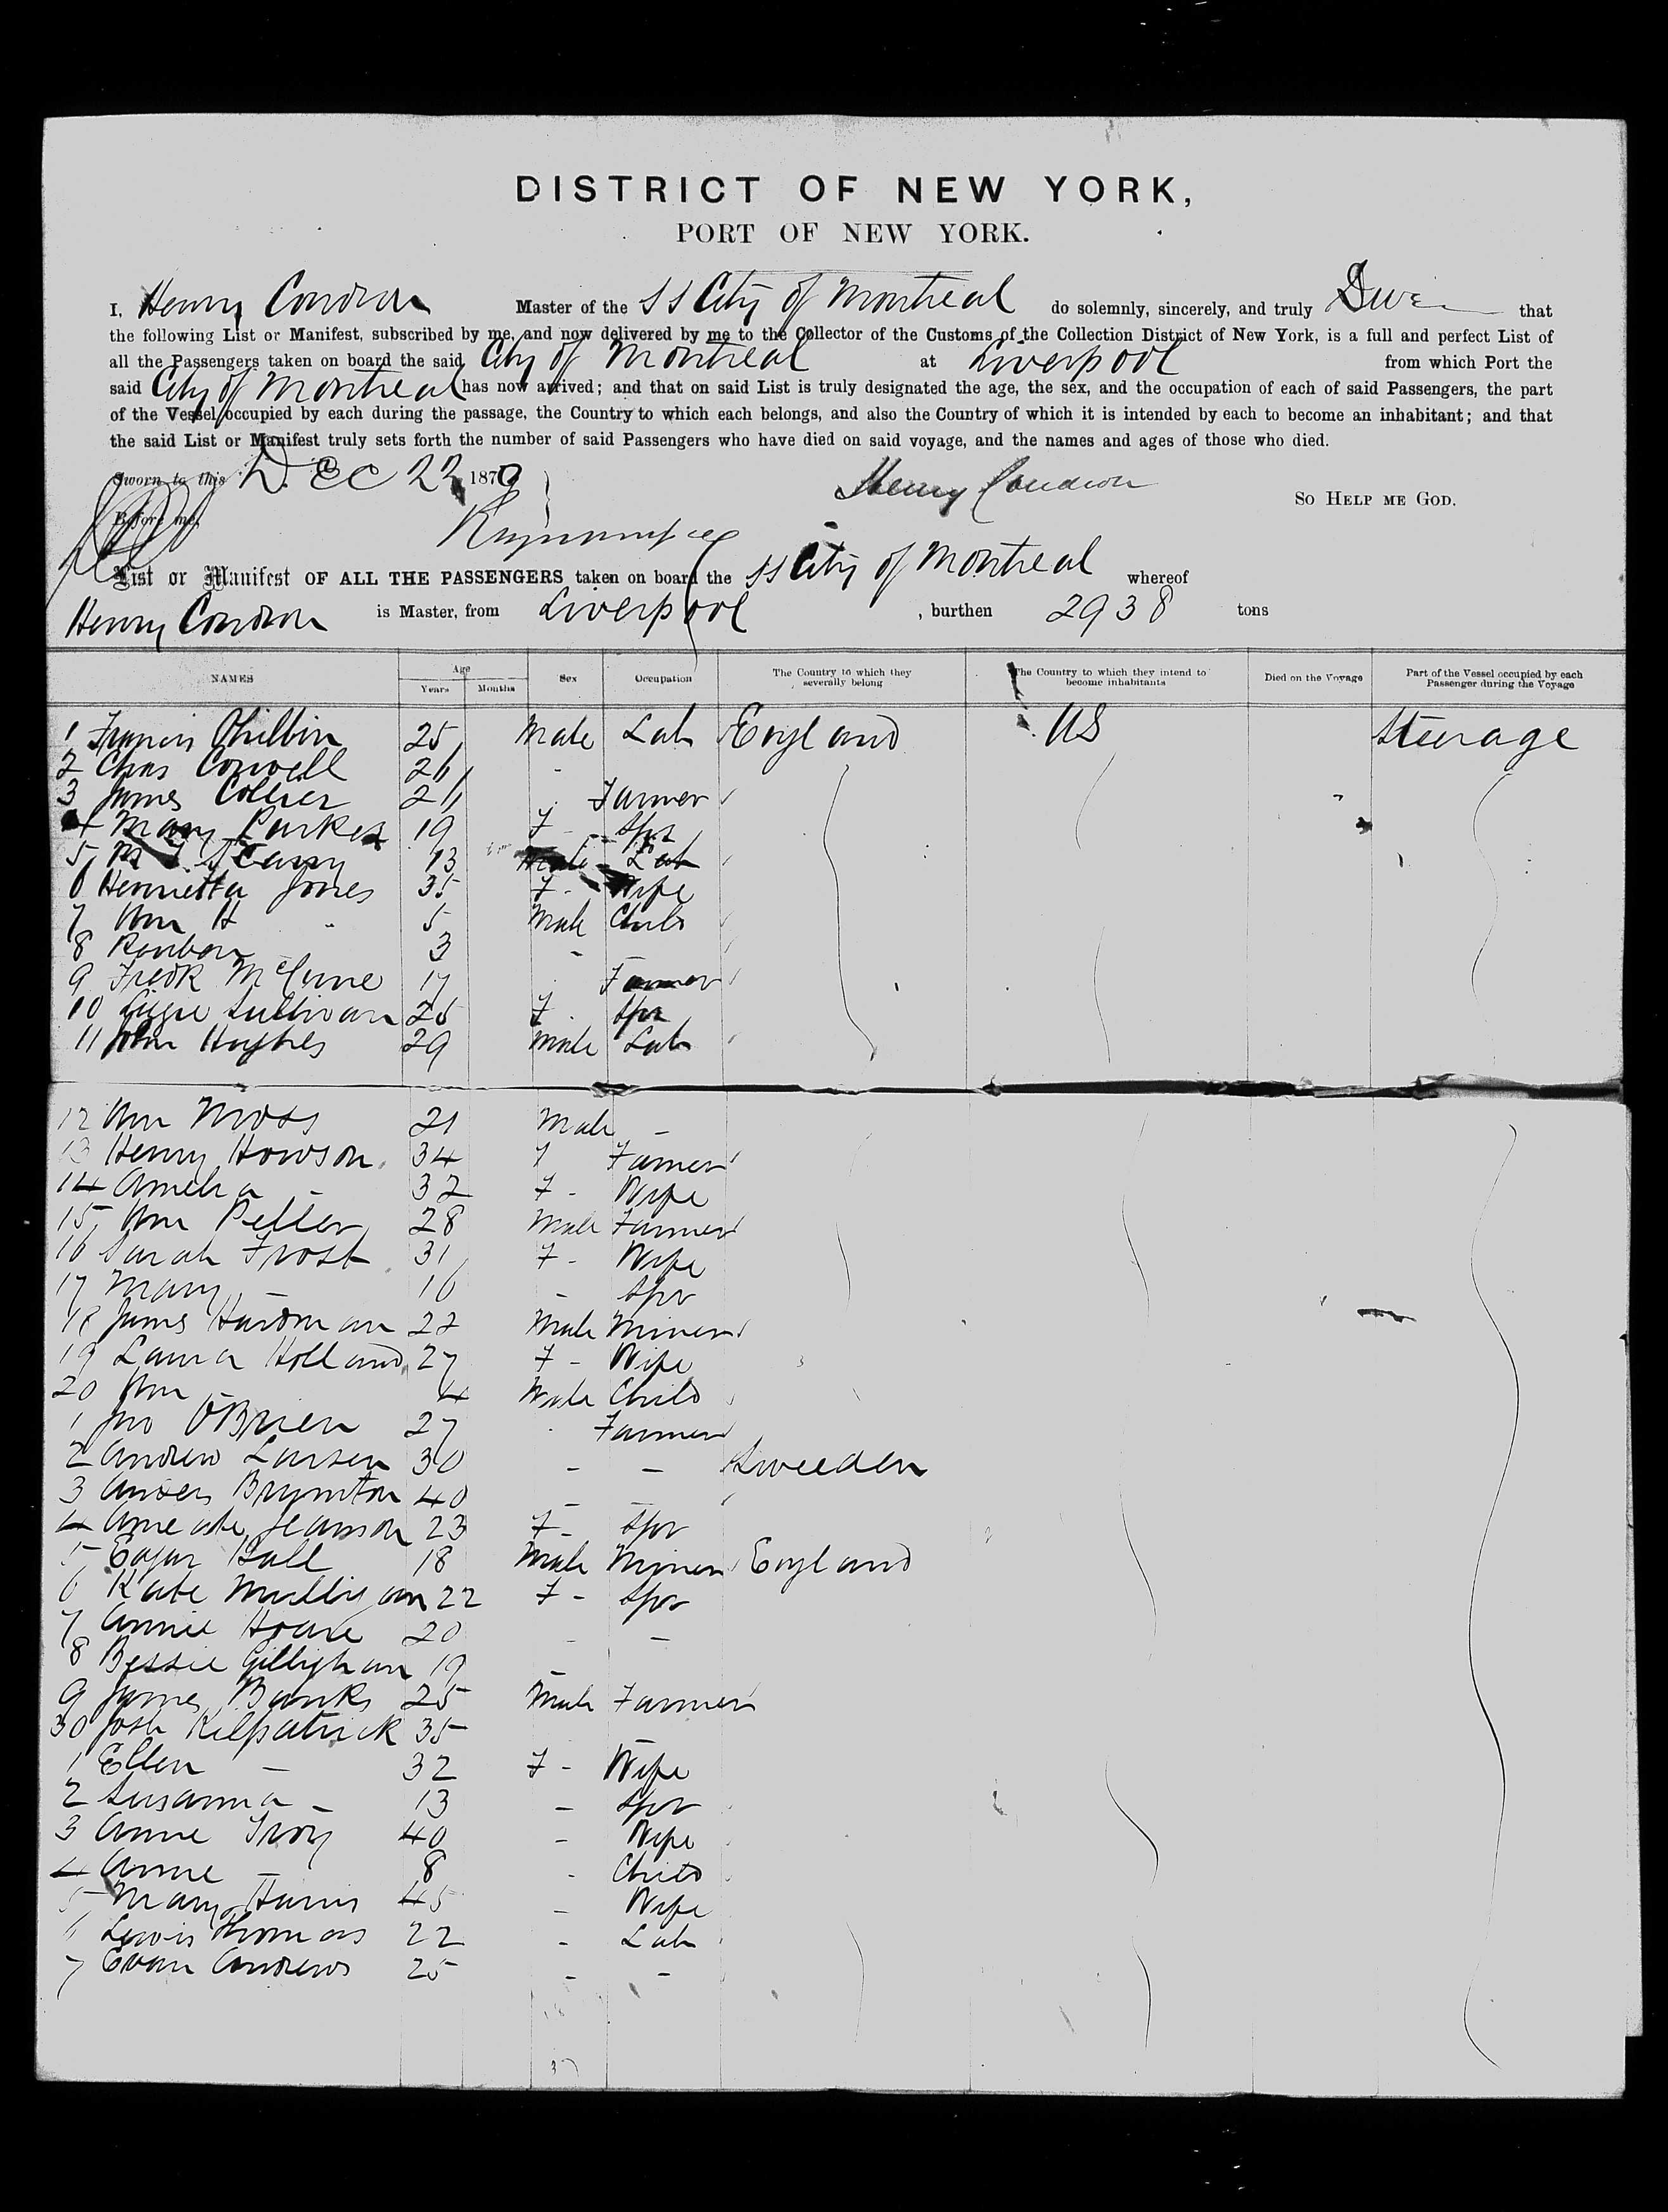 DISTRICT OF NEW YORK,
PORT OF NEW YORK.
I, Henry Condron Master of the SS City of Montreal do solemnly, sincerely, and truly Swear that
the following List or Manifest, subscribed by me, and now delivered by me to the Collector of the Customs of the Collection District of New York, is a full and perfect List of
all the Passengers taken on board the said City of Montreal at Liverpool from which Port the
said City of Montreal has now arrived; and that on said List is truly designated the age, the sex, and the occupation of each of said Passengers, the part
of the Vessel occupied by each during the passage, the Country to which each belongs, and also the Country of which it is intended by each to become an inhabitant; and that
the said List or Manifest truly sets forth the number of said Passengers who have died on said voyage, and the names and ages of those who died.
Sworn to this Dec 22 1879 Henry Condron SO HELP ME GOD.
Before me,
List or Manifest OF ALL THE PASSENGERS taken on board the SS City of Montreal whereof
Henry Condron is Master, from Liverpool, burthen 2938 tons
NAMES Age Years Months Sex Occupation The Country to which they severally belong The Country to which they intend to become inhabitants Died on the Voyage Part of the Vessel occupied by each Passenger during the Voyage
1 Francis Philbin 25 Male Lab England US Steerage
2 Chas Conwell 26 -
3 James Collier 26 Farmer
4 Mary Parker 19 F - Spr
5 13 Male Lab
6 Henrietta Jones 35 F - Wife
7 Wm H " 5 Male Child
8 Reuben - 3 -
9 Fredk McCune 17 Farmer
10 Lizzie Sullivan 25 F Spr
11 John Hughes 29 Male Lab
12 Wm Moss 21 Male -
13 Henry Howson 34 Farmer
14 Amelia - 32 F - Wife
15 Wm Peller 28 Male Farmer
16 Sarah Frost 31 F - Wife
17 Mary - 16 - Spr
18 James Hardman 22 Male Miner
19 Laura Holland 27 F - Wife
20 Wm - 4 Male Child
1 Jno O'Brien 27 Farmer
2 Andrew Larsen 30 - - Sweeden
3 Anders Brynton 40 - -
4 23 F - Spr
5 Edgar Hall 18 Male Miner England
6 Kate Mulligan 22 F - Spr
7 Annie Hoare 20 - -
8 Bessie Gillighan 19 -
9 James Banks 25 Male Farmer
30 Josh Kilpatrick 35 -
1 Ellen - 32 F - Wife
2 Susanna - 13 - Spr
3 Anne Troy 40 - Wife
4 Anne - 8 - Child
5 Mary Harris 45 - Wife
6 Lewis Thomas 22 - Lab
7 Evan Andrews 25 - -
37